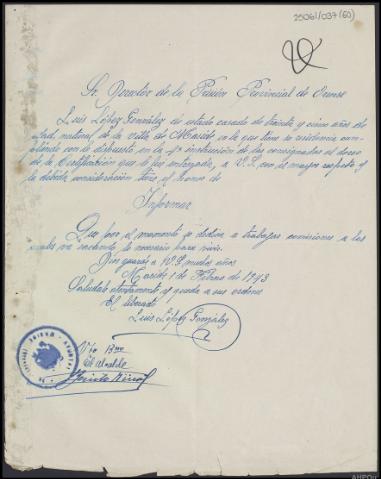 25061/037(60)
Sr. Director de la Prisión Provincial de Orense
Luis López González de estado casado de treinta y cinco años de
edad natural de la villa de Maside en la que tiene su residencia cum-
pliendo con lo dispuesto en la 4ª instrucción de las consignadas al dorso
de la Certificación que le fue entregada, a V.S. con el mayor respeto y
la debida consideración tiene el honor de
Informar
Que por el momento se dedica a trabajos comisiones a los
cuales va sacando lo necesario para vivir.
Dios guarde a V.S. muchos años
Maside 1 de Febrero de 1943
Saludale atentamente y queda a sus ordenes
El liberado
Luis López González
Vº Bno
El Alcalde